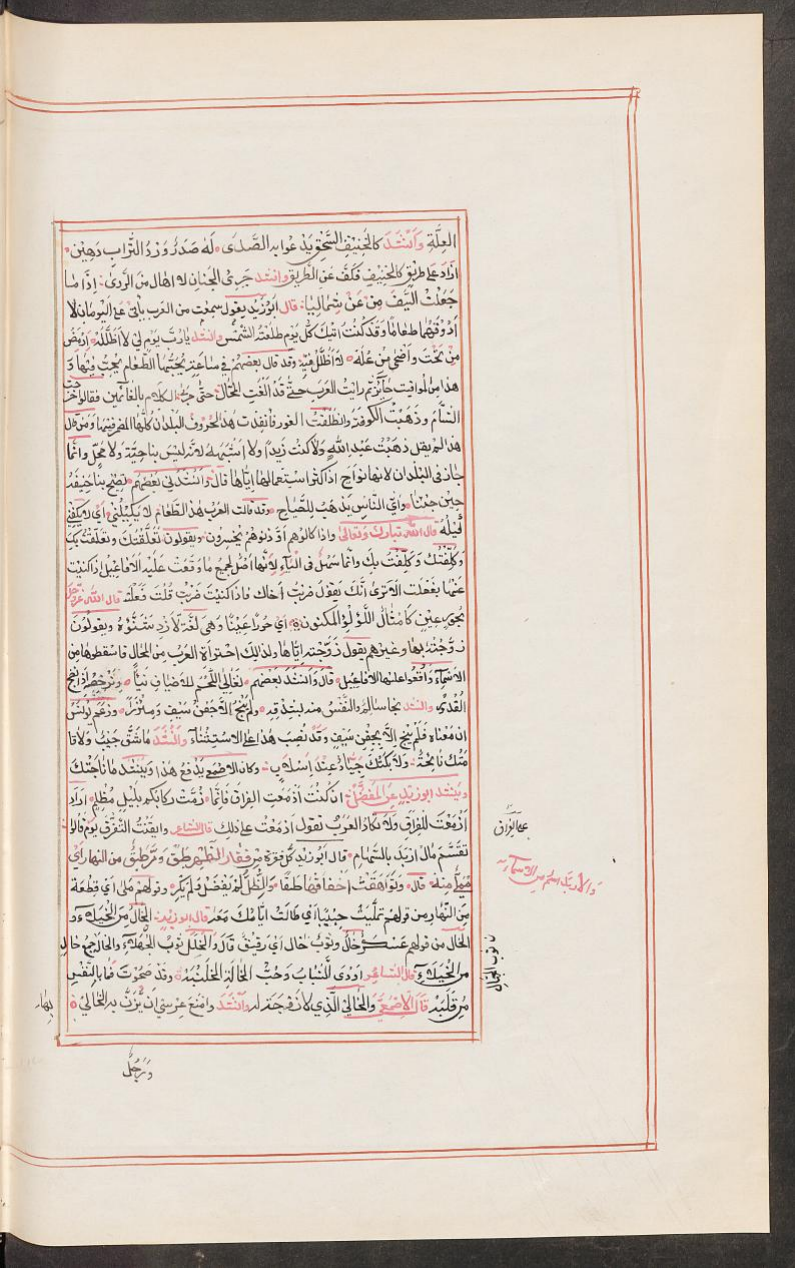 العِلَّةِ وَأَنْشَدَ كالخَنِيفِ السَّحْقِ يَدْعُو به الصَّدَى لَهُ صَدَدٌ وَرْدُ التُّرَابِ دَهِين
اراد على طريق كالخنيف فكفّ عن الطريق وانشد جرى الجنان لا اهال من الردى اذا ما
جَعَلْتُ السَّيْفَ مِنْ عَنْ شِمَالِيَا قال ابوزيد يقول سمعت من العرب يأتي على اليومان لا
أذوقهما طعامًا وقد كنت اتيك كل يوم طلعته الشمس وانشد يا ربّ يوم لي لا أظلّله ارمض
من تحت وأضحى من عله لا أظلّل فيه وقد قال بعضهم في ساعة يحبّها الطعام يحبّ فيها و
هذا من المواقيت جائز ثم رايت العرب حتى قد ألغت المحالّ حتى جرى الكلام بالغائبين فقالوا خرجت
الشام وذهبتُ الكوفة وانطلقت الغور فأنفذت هذه الحروف البلدان كلها المضمر فيها ومن قال
هذا لم يقل ذهبت عبد الله ولا كنت زيدًا ولا اشبهه لانه ليس بناحية ولا محلّ وانما
جاز في البلدان لانها نواحٍ اذ اكثروا استعمالها اياها قال وانشدني بعضهم تصيح بنا حنيفة
حين جئنا وأي الناس يذهب للصياح وقد قالت العرب هذا الطعام لا يكيلني اي لا يكفي
كيله قال الله تبارك وتعالى واذا كالوهم او وزنوهم يخسرون ويقولون تعلّقتك وتعلّقت بك
وكلّفتك وكلّفت بك وانما سهل في الباء لانها اصل لجميع ما وقعت عليه الافاعيل اذا كنيت
عنها بفعلت الا ترى انك تقول ضربت أخاك فاذا كنيت ضربت قلت فعلت به قال الله عزّ وجلّ
بحور عين كأمثال اللؤلؤ المكنون اي حورًا عينًا وهي لغة لازد شنوءة ويقولون
زوّجته بها وغيرهم يقول زوّجته اياها ولذلك اجترأت العرب من المحال فاسقطوها من
الاسماء واوقعوا عليها الافاعيل قال وانشد بعضهم نغالي اللحم للاضياف نيّا ونرخصه اذا نضج
القدير وانشد نجا سالم والنفس منه بشدقه ولم ينج الا جفن سيف ومئزرا وزعم يونس
ان معناه فلم ينج الا بجفن سيف وقد نصب هذا على الاستثناء وانشد ما شقّ جيب ولا قا
متك نائحة ولا بكتك جياد عند اسلاب وكان الاصمعي يدفع هذا وينشد ما ناحتك
وينشد ابو زيد عن المفضل ان كنت ازمعت الفراق فانما زمّت ركابكم بليل مظلم اراد
ازمعت للفراق ولا تكاد العرب تقول ازمعت على ذلك قال الشاعر وايقنت التفرق يوم قالوا
تقسّم مال اربد بالسهام قال ابو زيد كل فقرة من فقار الظهر طبق ومرّ طبق من النهار اي
مليّ منه قال وتواهقت أخفافها طبقًا والظلّ لم يفضل ولم يكر وقولهم مليّ اي قطعة
من النهار من قولهم تملّيت حبيبًا اي طالت ايامك معه قال ابو زيد الخال من الخيلاء و
الخال من قولهم عسكر خال وثوب خال اي رقيق قال والخال ثوب الجهلاء والخال جمع خالـ
من الخيلاء قال الشاعر اودى الشباب وحبّ الخالة الخلبة وقد صحوت فما بالنفس
من قلبه قال الاصمعي والخالي الذي لا زوجة له وانشد وامنع عرسي ان يزنّ بها الخالي
على الفراق
والاربد اسم من الاسماء
ثوب الخال
بها
ورجل